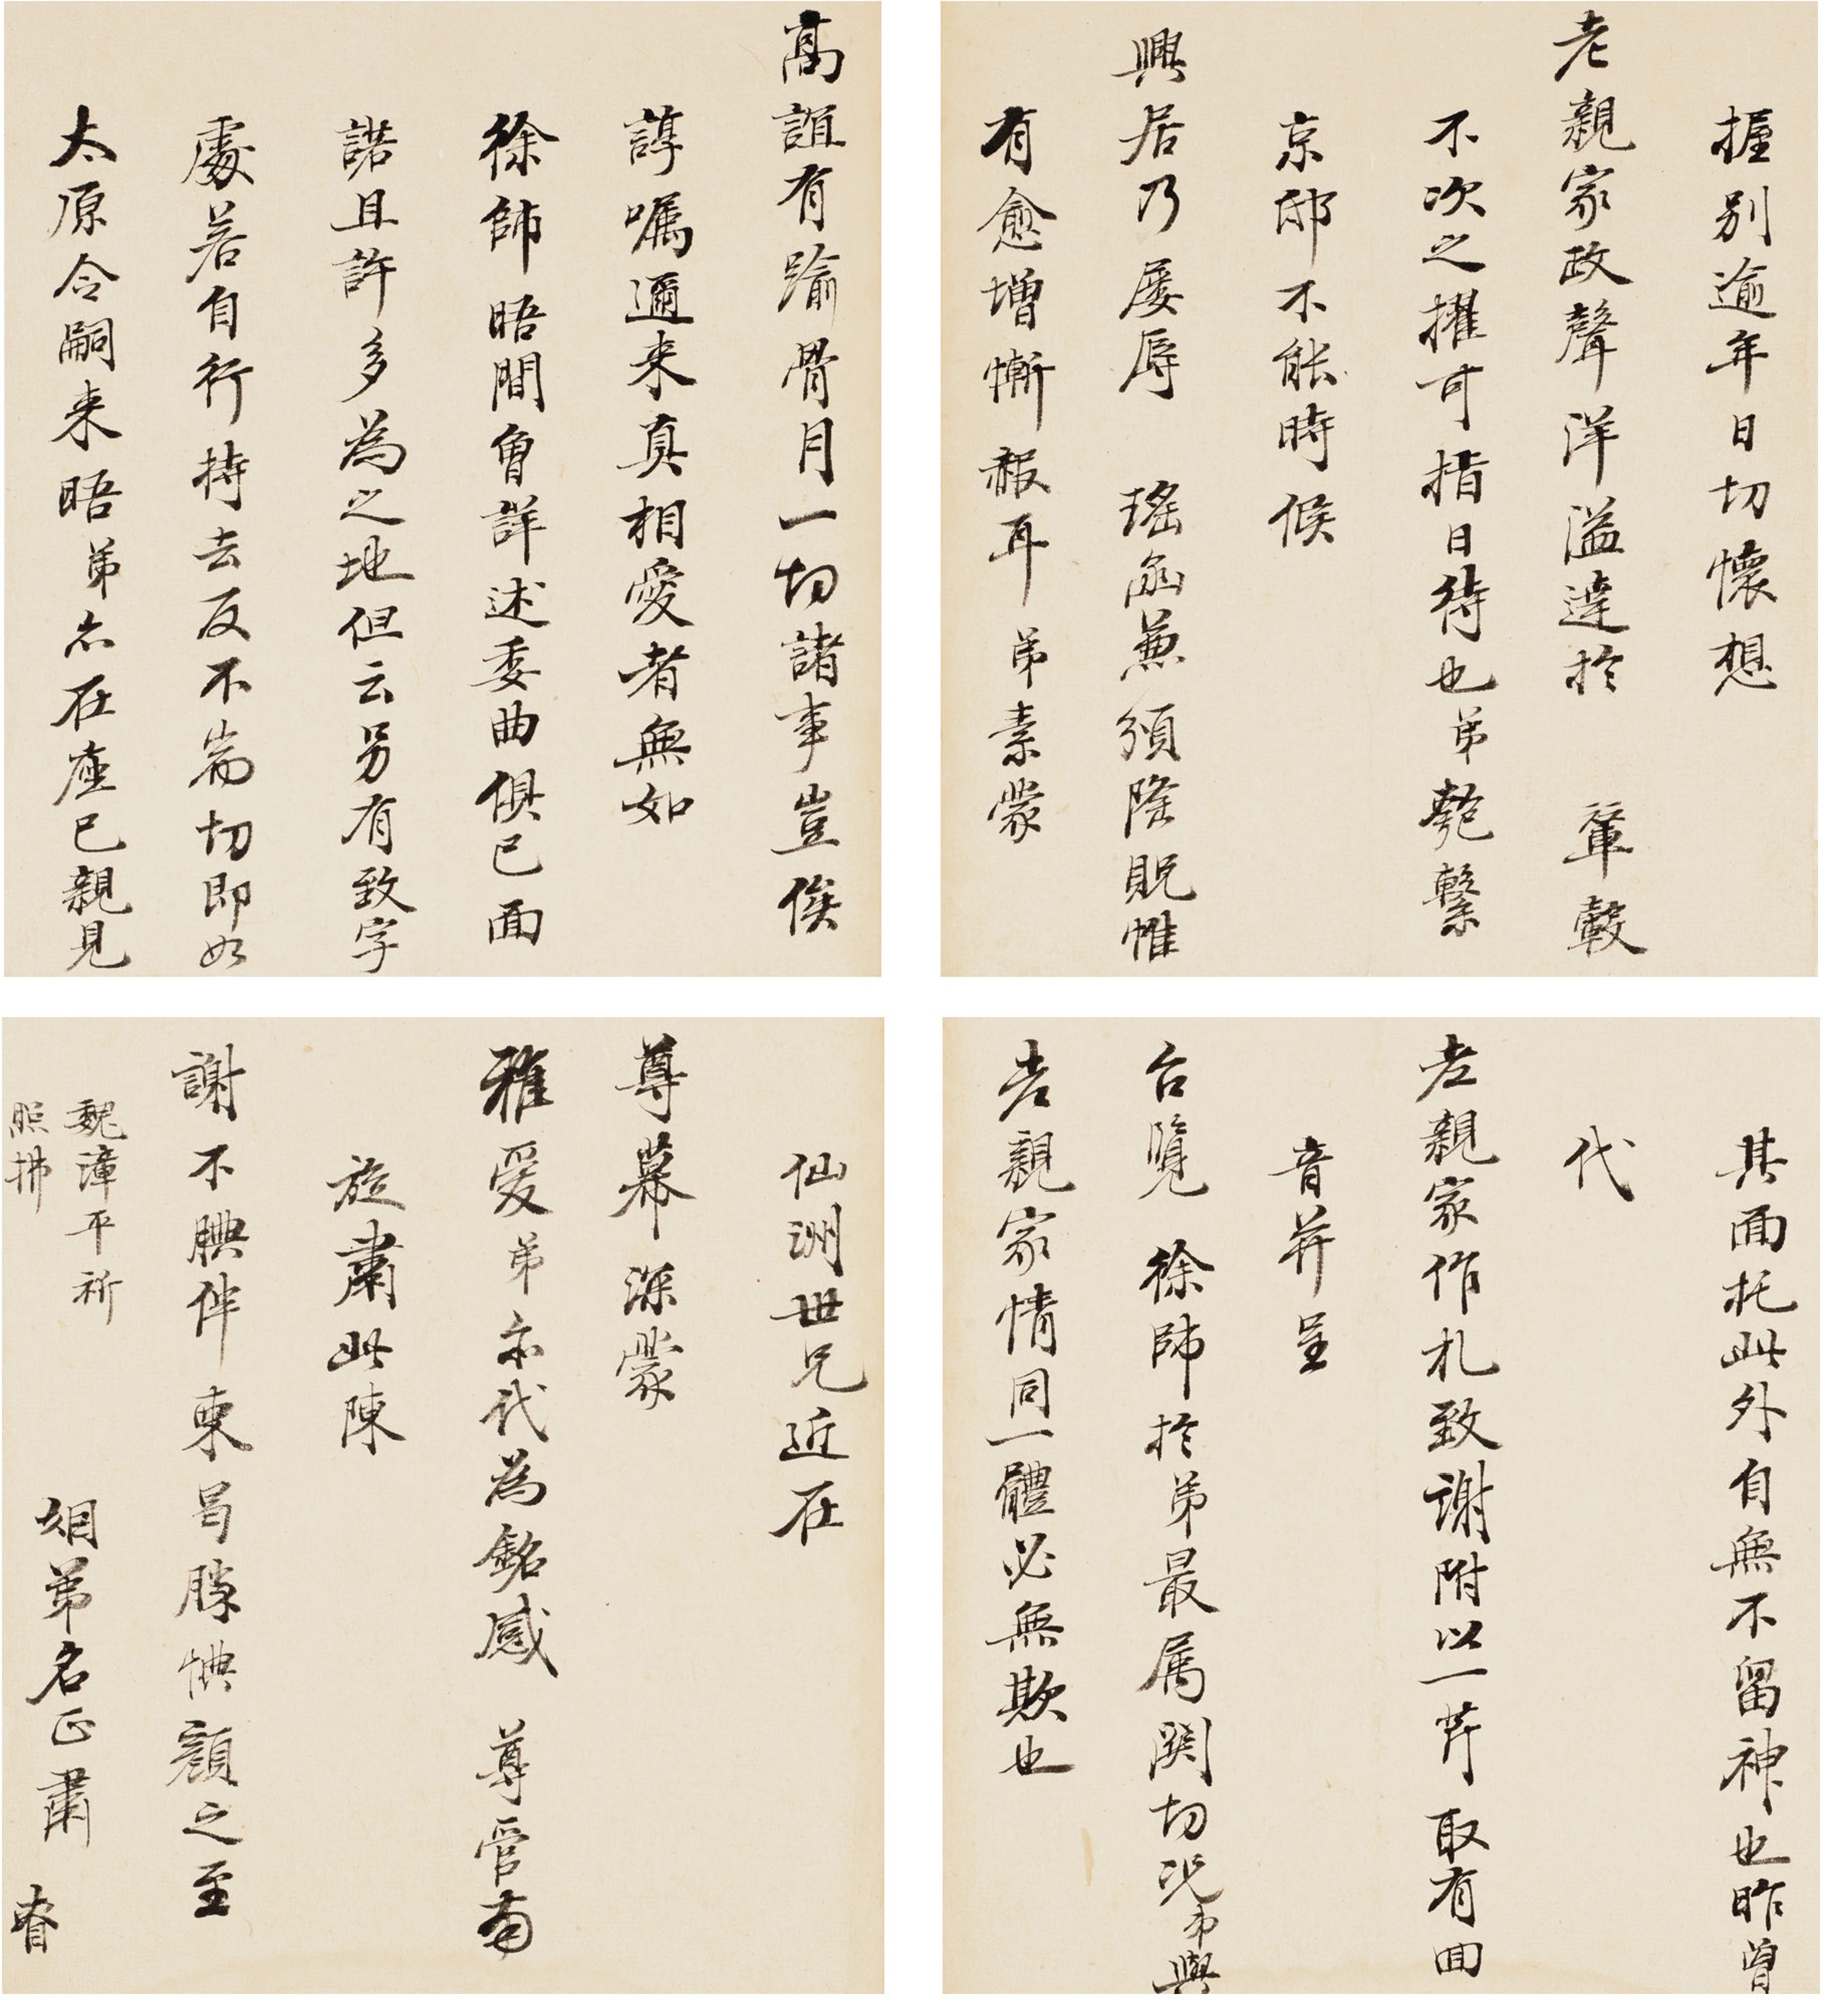 握別逾年日切懷想
老親家政聲洋溢達於 輦轂
不次之擢可指日待也弟匏繫
京邸不能時候
興居乃屡辱 瑤函兼須隆貺惟
有愈增慚赧耳弟素蒙
高誼有踰骨月一切諸事豈俟
諄囑邇来真相愛者無如
徐師晤間曾詳述委曲俱已面
諾且許多為之地但云另有致字
處若自行持去反不耑切即如
太原令嗣来晤弟亦在座已親見
其面托此外自無不留神也昨曾
代
老親家作札致謝附以一芹取有回
音并呈
台覽 徐師於弟最属関切况弟與
老親家情同一體必無欺也
仙洲世兄近在
尊幕深蒙
雅愛弟亦代為銘感 尊管南
旋肅此陳
謝不腆伴柬曷勝愧顔之至
姻弟名正肅
魏漳平祈
照拂